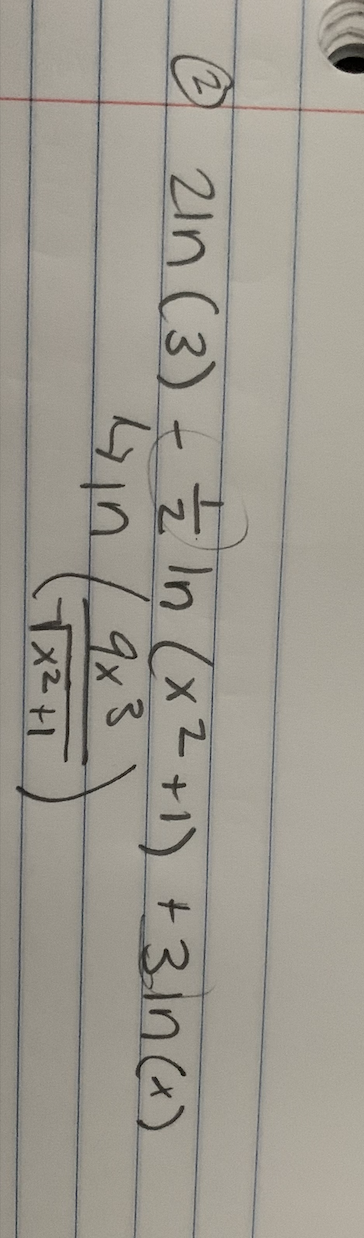 ② 2ln(3) - 1/2 ln(x²+1) + 3ln(x)
↳ ln(9x³/√(x²+1))